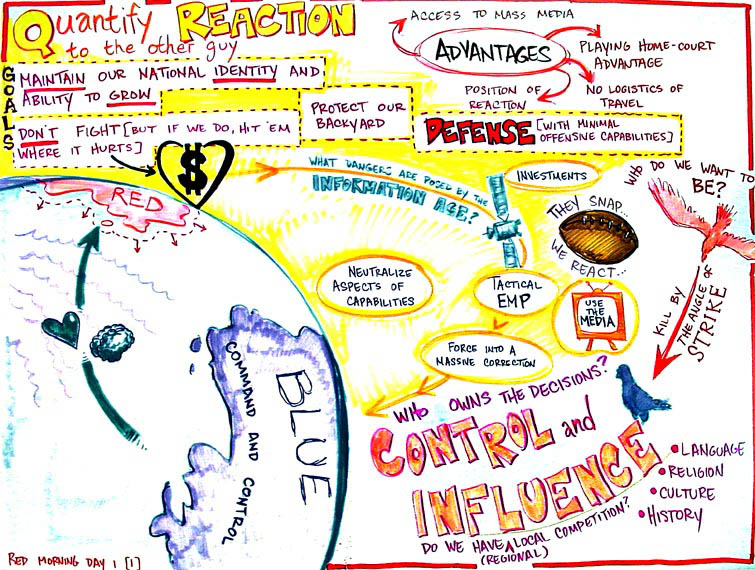 Quantify REACTION
to the other guy
GOALS
MAINTAIN OUR NATIONAL IDENTITY AND
ABILITY TO GROW
DON'T FIGHT [BUT IF WE DO, HIT 'EM
WHERE IT HURTS]
PROTECT OUR
BACKYARD
DEFENSE [WITH MINIMAL
OFFENSIVE CAPABILITIES]
ACCESS TO MASS MEDIA
ADVANTAGES
PLAYING HOME-COURT
ADVANTAGE
POSITION OF
REACTION
NO LOGISTICS OF
TRAVEL
$
RED
WHAT DANGERS ARE POSED BY THE
INFORMATION AGE?
INVESTMENTS
THEY SNAP...
WE REACT...
WHO DO WE WANT TO
BE?
NEUTRALIZE
ASPECTS OF
CAPABILITIES
TACTICAL
EMP
USE
THE
MEDIA
FORCE INTO A
MASSIVE CORRECTION
KILL BY
THE ANGLE OF
STRIKE
BLUE
COMMAND AND CONTROL
WHO OWNS THE DECISIONS?
CONTROL and
INFLUENCE
LANGUAGE
RELIGION
CULTURE
HISTORY
DO WE HAVE ^ LOCAL COMPETITION?
(REGIONAL)
RED MORNING DAY 1 [1]